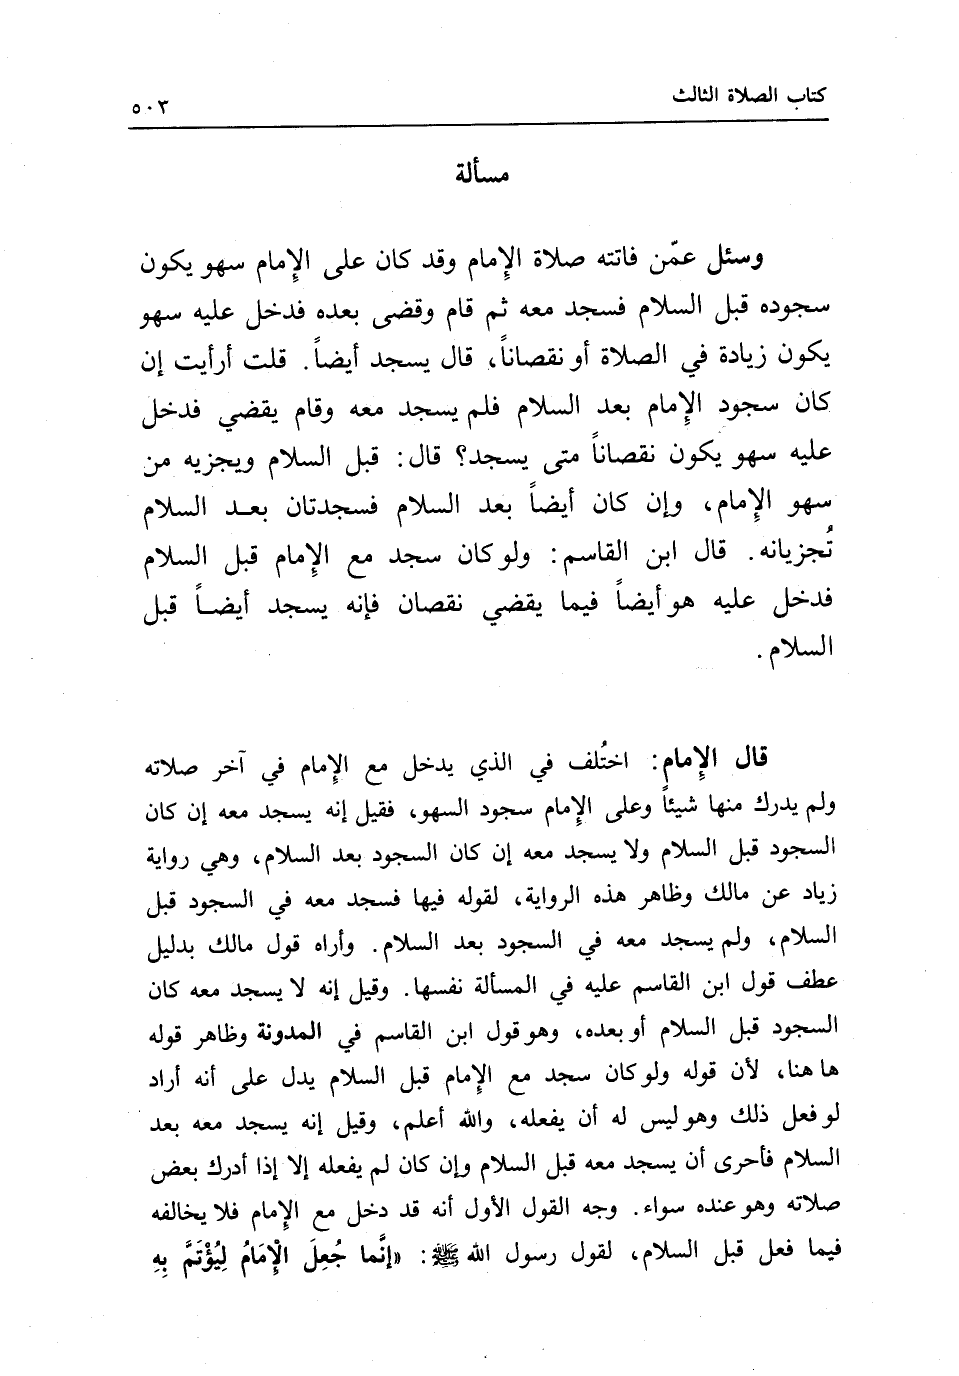 كتاب الصلاة الثالث
٥٠٣
مسألة
وسئل عمّن فاتته صلاة الإِمام وقد كان على الإِمام سهو يكون
سجوده قبل السلام فسجد معه ثم قام وقضى بعده فدخل عليه سهو
يكون زيادة في الصلاة أو نقصاناً، قال يسجد أيضاً. قلت أرأيت إن
كان سجود الإِمام بعد السلام فلم يسجد معه وقام يقضي فدخل
عليه سهو يكون نقصاناً متى يسجد؟ قال: قبل السلام ويجزيه من
سهو الإِمام، وإن كان أيضاً بعد السلام فسجدتان بعد السلام
تُجزيانه. قال ابن القاسم: ولو كان سجد مع الإِمام قبل السلام
فدخل عليه هو أيضاً فيما يقضي نقصان فإنه يسجد أيضاً قبل
السلام.
قال الإِمام: اختُلف في الذي يدخل مع الإِمام في آخر صلاته
ولم يدرك منها شيئاً وعلى الإِمام سجود السهو، فقيل إنه يسجد معه إن كان
السجود قبل السلام ولا يسجد معه إن كان السجود بعد السلام، وهي رواية
زياد عن مالك وظاهر هذه الرواية، لقوله فيها فسجد معه في السجود قبل
السلام، ولم يسجد معه في السجود بعد السلام. وأراه قول مالك بدليل
عطف قول ابن القاسم عليه في المسألة نفسها. وقيل إنه لا يسجد معه كان
السجود قبل السلام أو بعده، وهو قول ابن القاسم في المدونة وظاهر قوله
ها هنا، لأن قوله ولو كان سجد مع الإِمام قبل السلام يدل على أنه أراد
لو فعل ذلك وهو ليس له أن يفعله، والله أعلم، وقيل إنه يسجد معه بعد
السلام فأحرى أن يسجد معه قبل السلام وإن كان لم يفعله إلا إذا أدرك بعض
صلاته وهو عنده سواء. وجه القول الأول أنه قد دخل مع الإِمام فلا يخالفه
فيما فعل قبل السلام، لقول رسول الله ﷺ: «إنَّما جُعِلَ الْإمَامُ لِيُؤْتَمَّ بِهِ